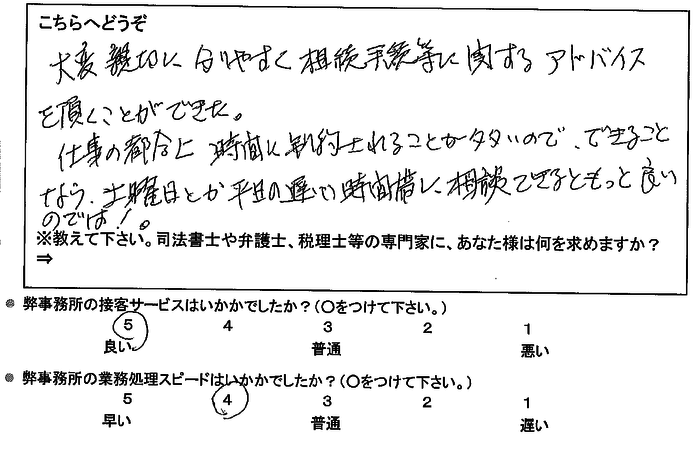 こちらへどうぞ
大変親切に分りやすく相続手続等に関するアドバイス
を頂くことができた。
仕事の都合上時間に制約されることが多いので、できること
なら、土曜日とか平日の遅い時間帯に相談できるともっと良い
のでは!。
※教えて下さい。司法書士や弁護士、税理士等の専門家に、あなた様は何を求めますか?
⇒
● 弊事務所の接客サービスはいかかでしたか?(○をつけて下さい。)
5 4 3 2 1
良い 普通 悪い
● 弊事務所の業務処理スピードはいかかでしたか?(○をつけて下さい。)
5 4 3 2 1
早い 普通 遅い